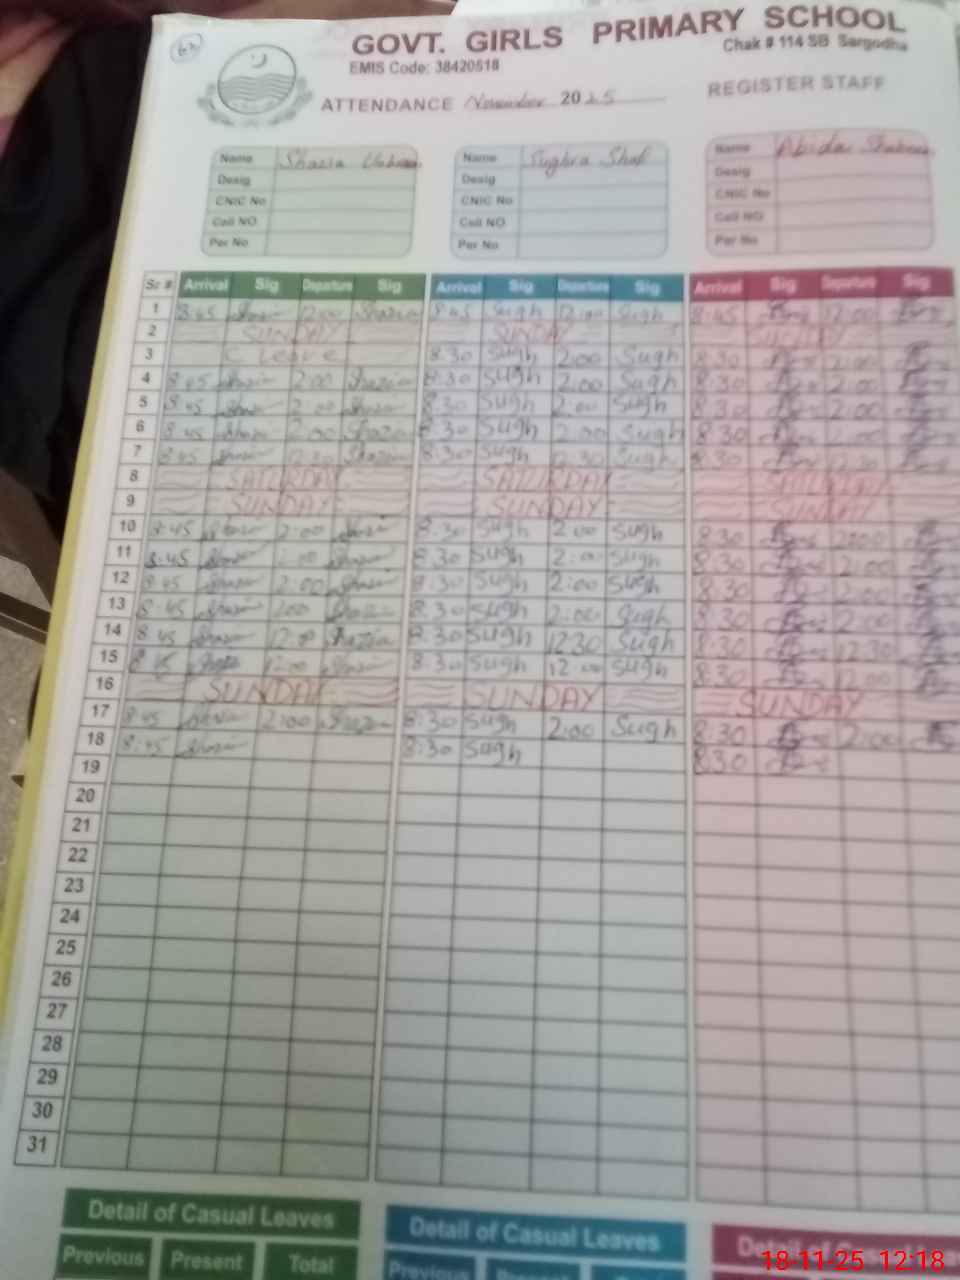 63
GOVT. GIRLS PRIMARY SCHOOL
Chak # 114 SB Sargodha
EMIS Code: 38420518
ATTENDANCE November 2025 REGISTER STAFF
Name Shazia Name Sughra Shaf Name Abida Shaheen
Desig Desig Desig
CNIC No CNIC No CNIC No
Cell NO Cell NO Cell NO
Per No Per No Per No
Sr # Arrival Sig Departure Sig Arrival Sig Departure Sig Arrival Sig Departure Sig
1 8:45 Shazia 12:00 Shazia 8:45 Sugh 12:00 Sugh 8:45 12:00
2 SUNDAY SUNDAY SUNDAY
3 C Leave 8:30 Sugh 2:00 Sugh 8:30 2:00
4 8:45 Shazia 2:00 Shazia 8:30 Sugh 2:00 Sugh 8:30 2:00
5 8:45 Shazia 2:00 Shazia 8:30 Sugh 2:00 Sugh 8:30 2:00
6 8:45 Shazia 2:00 Shazia 8:30 Sugh 2:00 Sugh 8:30 2:00
7 8:45 Shazia 12:30 Shazia 8:30 Sugh 12:30 Sugh 8:30 12:30
8 SATURDAY SATURDAY SATURDAY
9 SUNDAY SUNDAY SUNDAY
10 8:45 Shazia 2:00 Shazia 8:30 Sugh 2:00 Sugh 8:30 2:00
11 8:45 Shazia 2:00 Shazia 8:30 Sugh 2:00 Sugh 8:30 2:00
12 8:45 Shazia 2:00 Shazia 8:30 Sugh 2:00 Sugh 8:30 2:00
13 8:45 Shazia 2:00 Shazia 8:30 Sugh 2:00 Sugh 8:30 2:00
14 8:45 Shazia Shazia 8:30 Sugh 12:30 Sugh 8:30 12:30
15 8:45 Shazia 12:00 Shazia 8:30 Sugh 12:00 Sugh 8:30 12:00
16 SUNDAY SUNDAY SUNDAY
17 8:45 Shazia 2:00 Shazia 8:30 Sugh 2:00 Sugh 8:30 2:00
18 8:45 Shazia 8:30 Sugh 8:30
19
20
21
22
23
24
25
26
27
28
29
30
31
Detail of Casual Leaves Detail of Casual Leaves Detail of Casual
Previous Present Total Previous
18-11-25 12:18